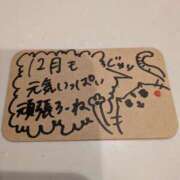 12月も
元気いっぱい
頑張ろーね